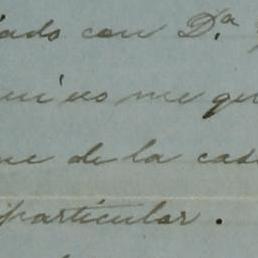 ado con D.ª
no me qu
me de la cas
particular.